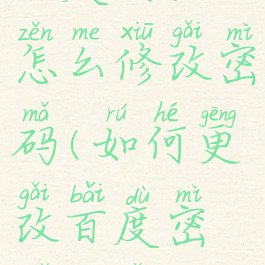 zěn me xiū gǎi mì
怎么修改密
mǎ rú hé gēng
码(如何更
gǎi bǎi dù mì
改百度密